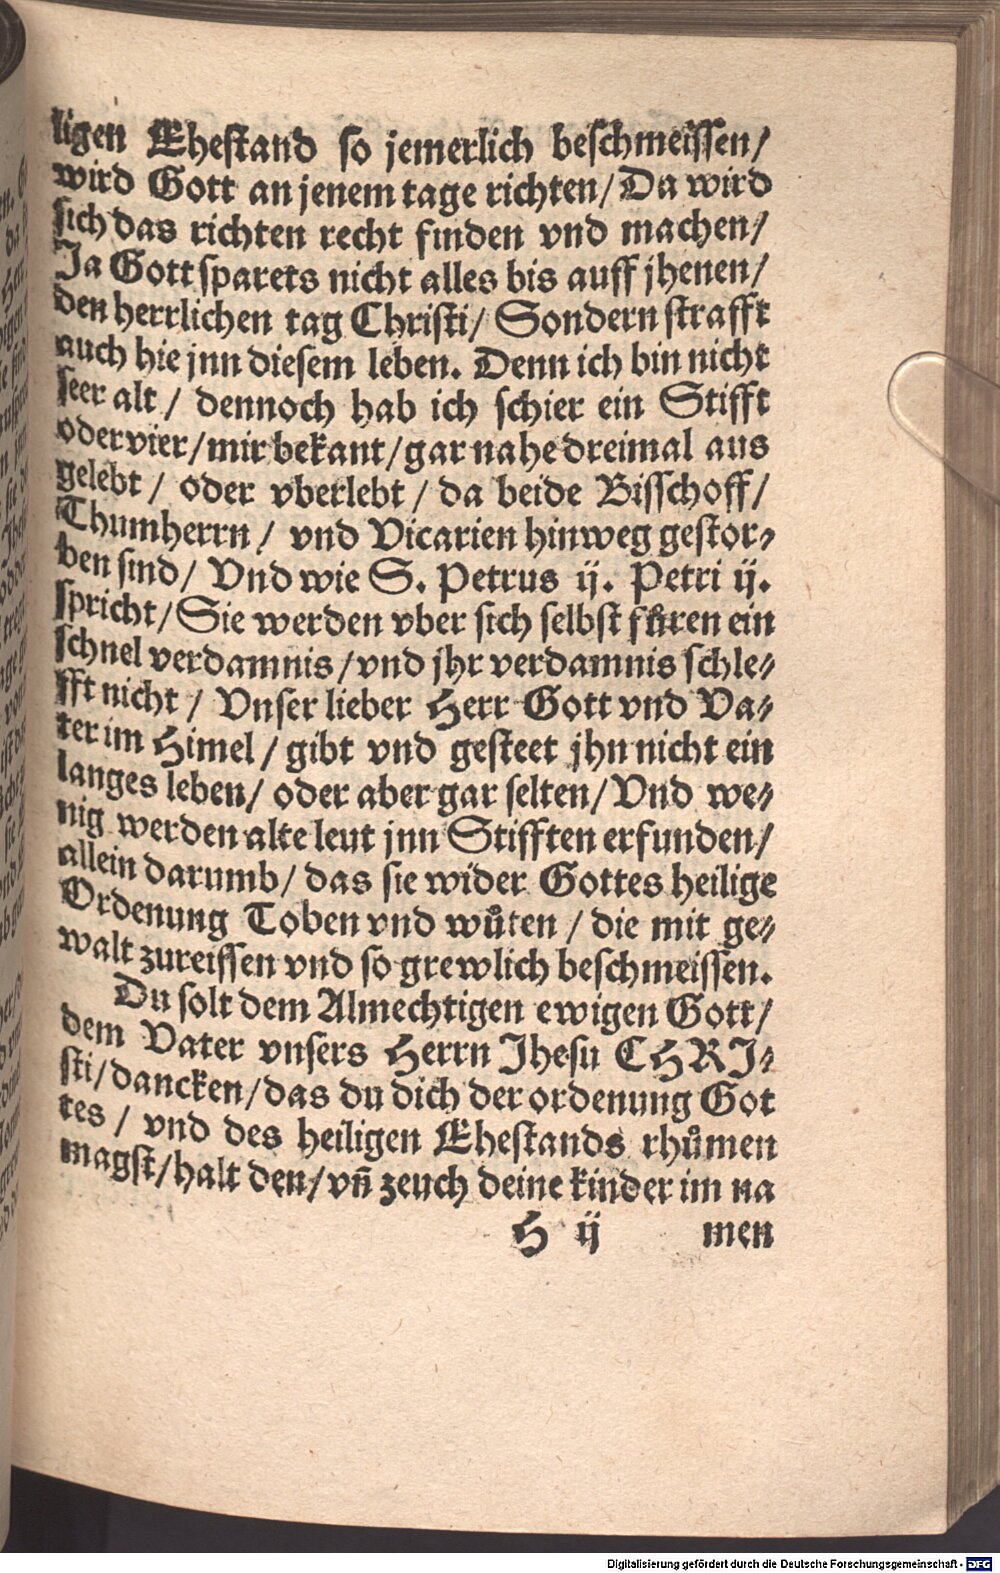 ligen Ehestand so jemerlich beschmeissen/
wird Gott an jenem tage richten/ Da wird
sich das richten recht finden vnd machen/
Ja Gott sparets nicht alles bis auff jhenen/
den herrlichen tag Christi/ Sondern strafft
auch hie jnn diesem leben. Denn ich bin nicht
seer alt/ dennoch hab ich schier ein Stifft
oder vier/ mir bekant/ gar nahe dreimal aus
gelebt/ oder vberlebt/ da beide Bisschoff/
Thumherrn/ vnd Vicarien hinweg gestor⸗
ben sind/ Vnd wie S. Petrus ij. Petri ij.
spricht/ Sie werden vber sich selbst fůren ein
schnel verdamnis/ vnd jhr verdamnis schle⸗
fft nicht/ Vnser lieber Herr Gott vnd Va⸗
ter im Himel/ gibt vnd gesteet jhn nicht ein
langes leben/ oder aber gar selten/ Vnd we⸗
nig werden alte leut jnn Stifften erfunden/
allein darumb/ das sie wider Gottes heilige
Ordenung Toben vnd wůten/ die mit ge⸗
walt zureissen vnd so grewlich beschmeissen.
Du solt dem Almechtigen ewigen Gott/
dem Vater vnsers Herrn Jhesu CHRJ⸗
sti/ dancken/ das du dich der ordenung Got
tes/ vnd des heiligen Ehestands rhůmen
magst/ halt den/ vñ zeuch deine kinder im na
H ij men
Digitalisierung gefördert durch die Deutsche Forschungsgemeinschaft - DFG